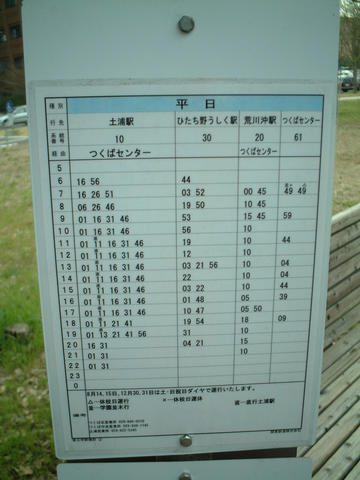 種別 平日
行先 土浦駅 ひたち野うしく駅 荒川沖駅 つくばセンター
系統番号 10 30 20 61
経由 つくばセンター つくばセンター
5
6 16 56 44
7 16 26 51 03 52 00 45 49 49
8 06 26 46 19 50 10 45
9 01 16 31 46 53 15 45 59
10 01 16 31 46 56 10
11 01 11 16 31 46 19 10 44
12 01 11 16 31 46 12 10
13 01 11 16 31 46 03 21 56 10 04
14 01 11 16 31 46 22 10 04
15 01 11 16 31 46 03 22 10 44
16 01 11 16 31 46 01 48 05 39
17 01 11 16 31 46 10 47 05 50
18 01 11 21 41 19 54 18 09
19 01 13 21 41 56 31 10
20 16 31 04 21 15
21 01 31 10
22 01 31
23
0
8月14,15日,12月30,31日は土・日祝日ダイヤで運行いたします。
△―休校日運行 ×―休校日運休 直―直行土浦駅
並―学園並木行
備考